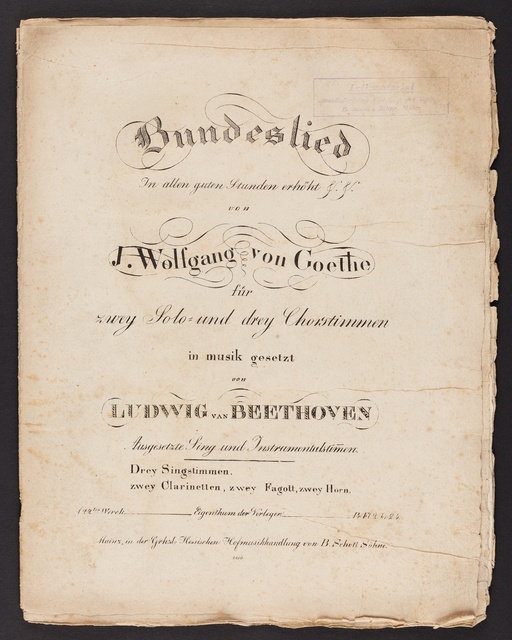 Bundeslied
In allen guten Stunden erhöht
von
J. Wolfgang von Goethe
für
zwey Solo- und drey Chorstimmen
in musik gesetzt
von
LUDWIG VAN BEETHOVEN
Ausgesetzte Sing und Instrumentalstimen.
Drey Singstimmen.
zwey Clarinetten, zwey Fagott, zwey Horn.
Eigenthum der Verleger.
Mainz, in der Grhzl. Hessischen Hofmusikhandlung von B. Schott Söhne